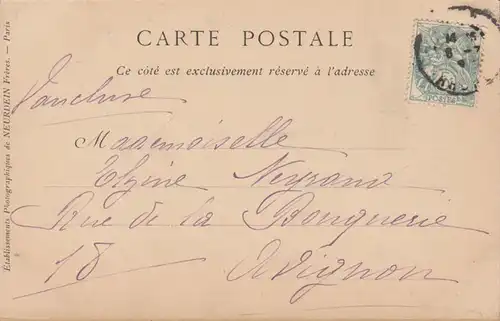 CARTE POSTALE
Ce côté est exclusivement réservé à l'adresse
Vaucluse
Mademoiselle
Elzine Neyrand
Rue de la Bonquerie
18 Avignon
Établissements Photographiques de NEURDEIN Frères. — Paris